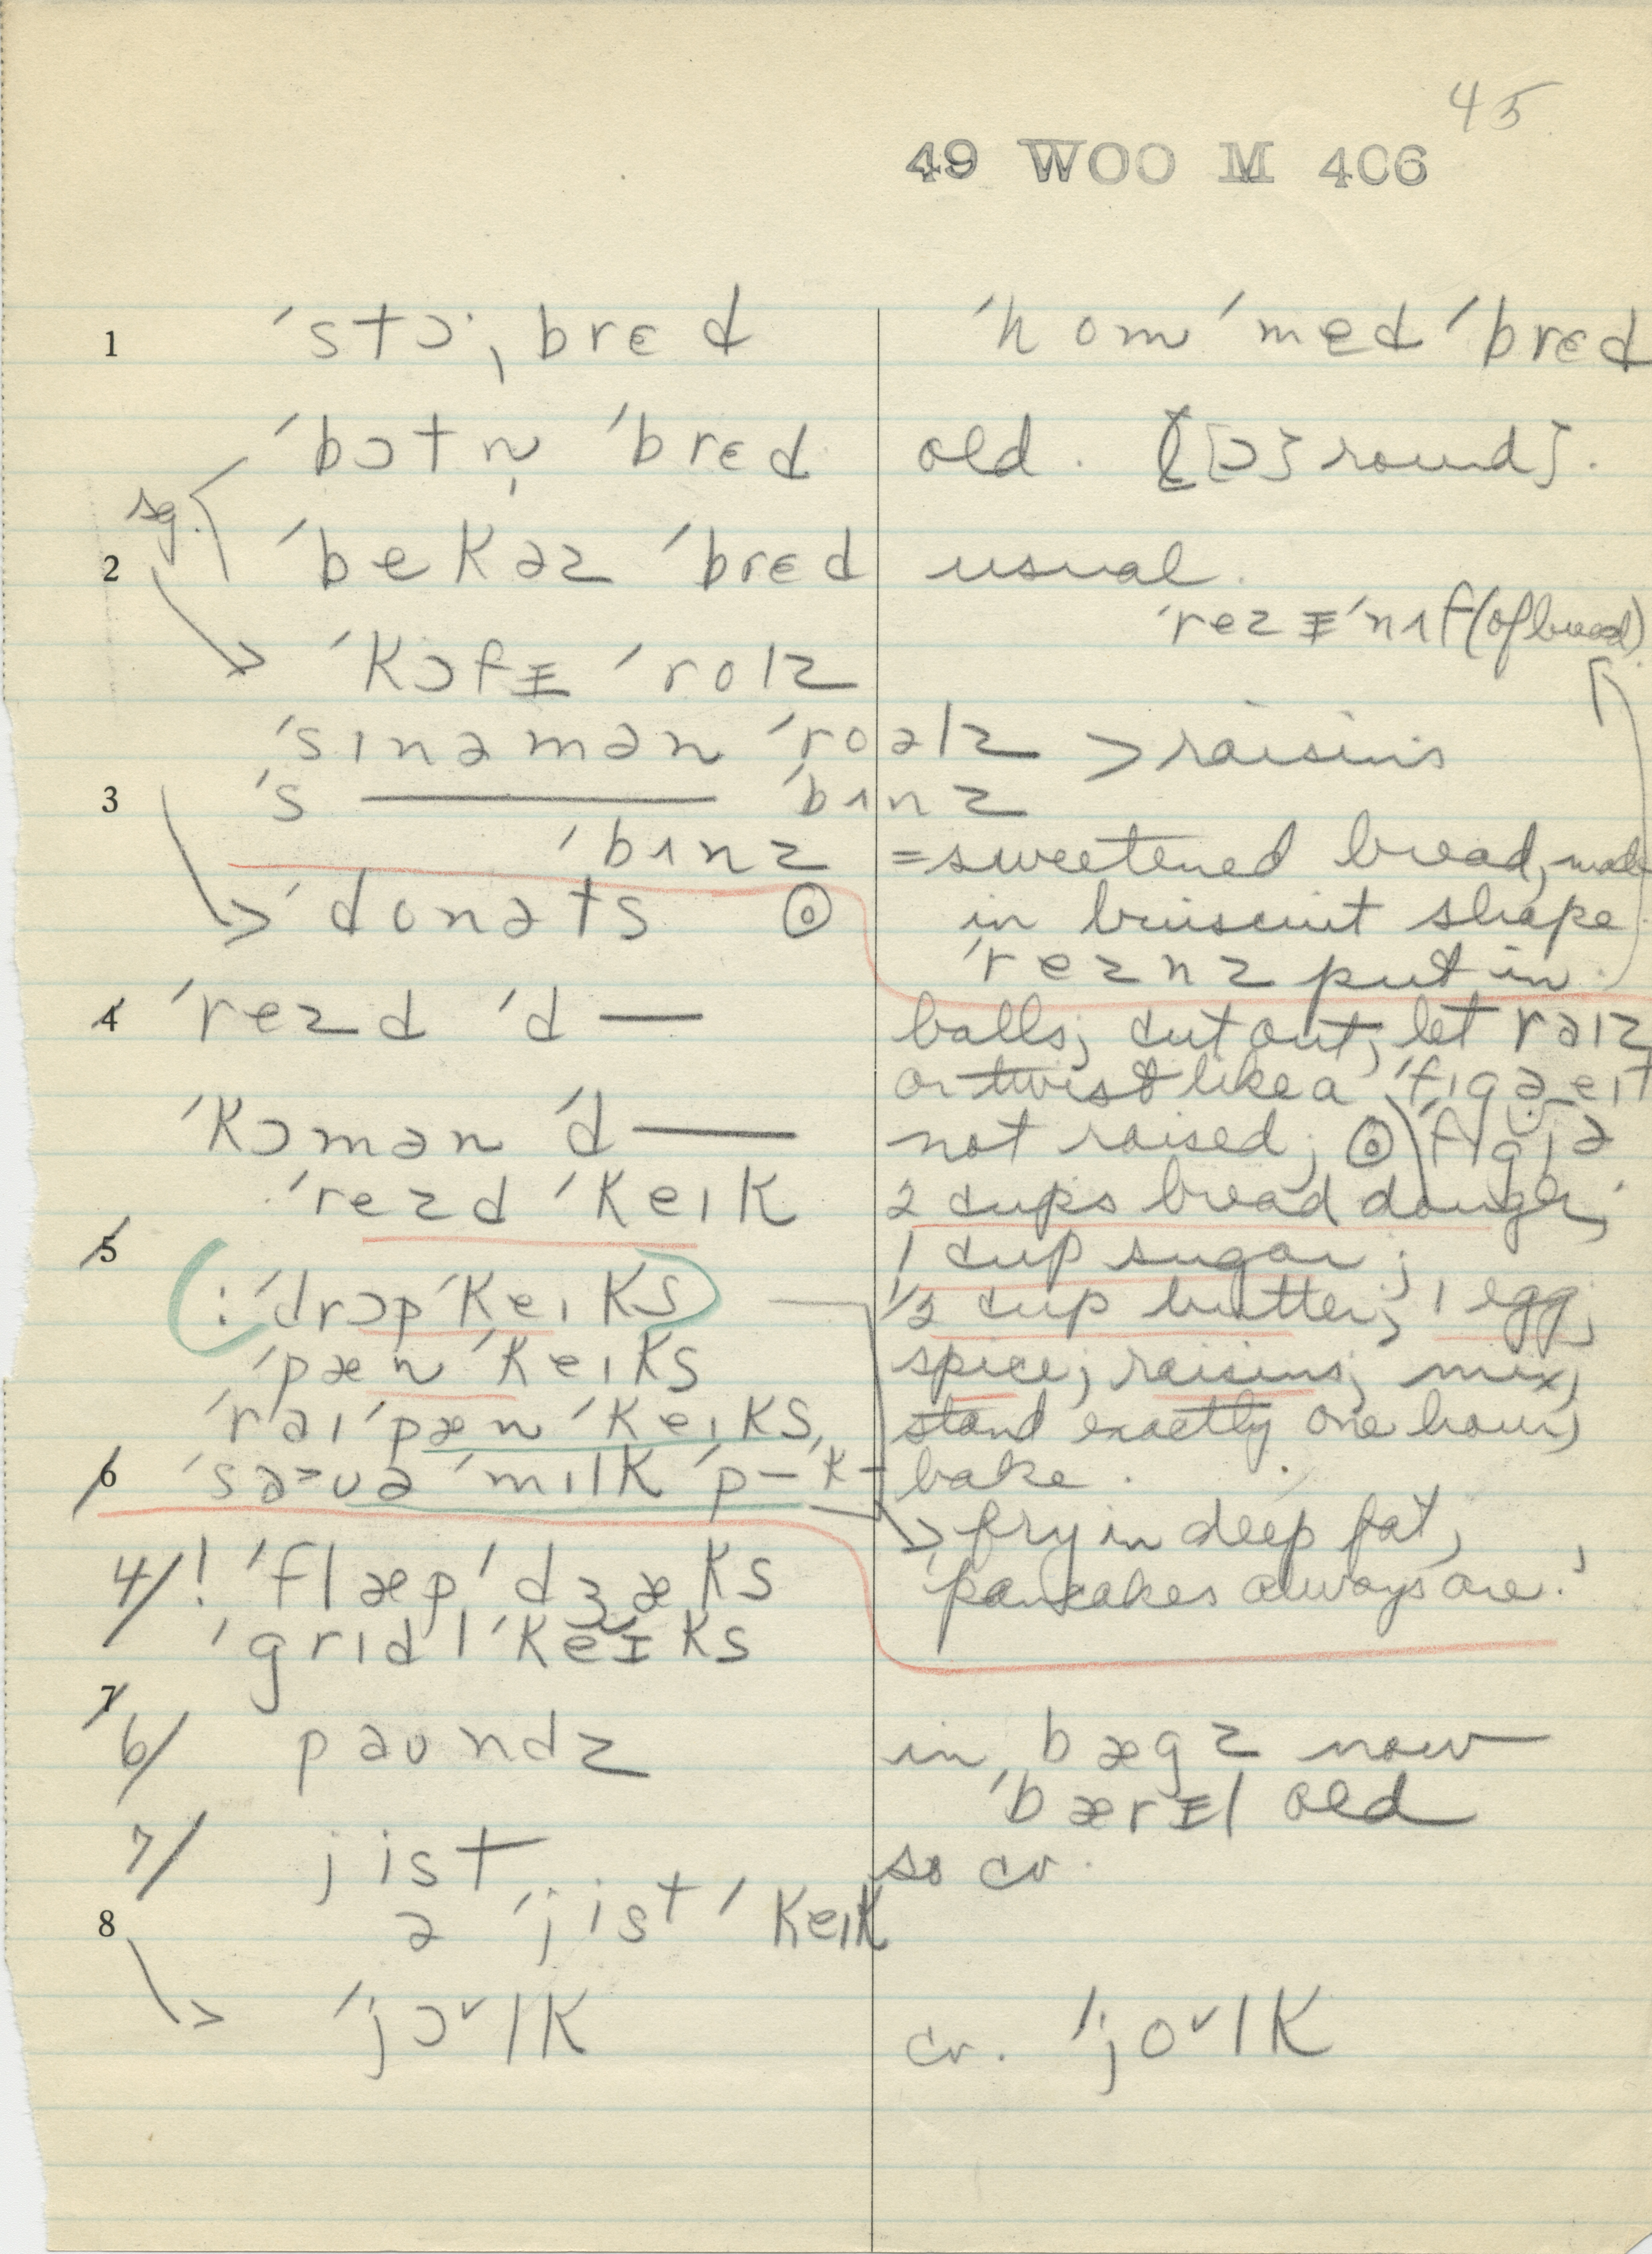 45
49 WOO M 406
1 ˈstɔ·ˌbrɛd ˈhomˈmedˈbrɛd
ˈbɔtn̩ ˈbrɛd old. [ɔ] round].
sg.
2 ˈbekəz ˈbrɛd usual.
ˈrezɪ̵ˈnʌf (of bread)
ˈkɔfɪ̵ ˈrolz
ˈsɪnəmən ˈroəlz > raisins
3 ˈs —— ˈbʌnz
ˈbʌnz = sweetened bread, made
> ˈdonəts ⊙ in bruiscuit shape
ˈreznz put in.
4 ˈrezd ˈd — balls; cut out; let raɪz
or twist like a ˈfɪgə eɪt
ˈkɔmən ˈd — not raised; ⊙ ˈfɪgjə
ˈrezd ˈkeɪk 2 cups bread dough;
5 1 cup sugar;
: ˈdrɔpˈkeɪks ½ cup butter; 1 egg;
ˈpænˈkeɪks spice; raisins; mix;
ˈraɪˈpænˈkeɪks, stand exactly one hour;
6 ˈsaʊə ˈmɪlk ˈp– k– bake.
> fry in deep fat,
4/ ! ˈflæpˈdʒæks ˈpancakes always are.ˈ
ˈgrɪdlˈkeɪks
7
6/ paʊndz in bægz now
ˈbærɪ̵l old
7/ jist so cr.
8 ə ˈjist ˈkeɪk
> ˈjɔ˅lk cr. ˈjo˅lk